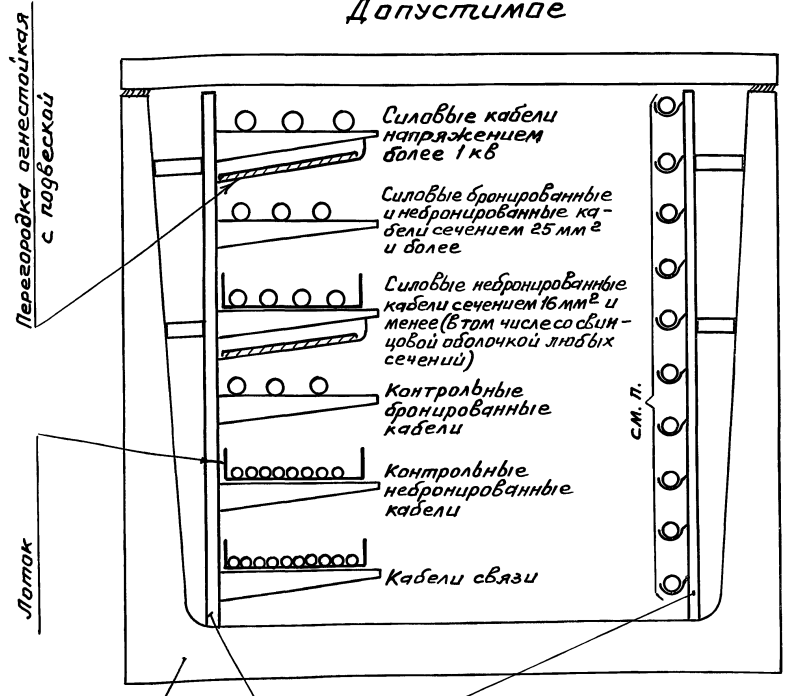 Допустимое
Перегородка огнестойкая
с подвеской
Силовые кабели
напряжением
более 1 кв
Силовые бронированные
и небронированные ка-
бели сечением 25 мм²
и более
Силовые небронированные
кабели сечением 16 мм² и
менее (в том числе со свин-
цовой оболочкой любых
сечений)
Контрольные
бронированные
кабели
Контрольные
небронированные
кабели
Кабели связи
см. п.
Лоток